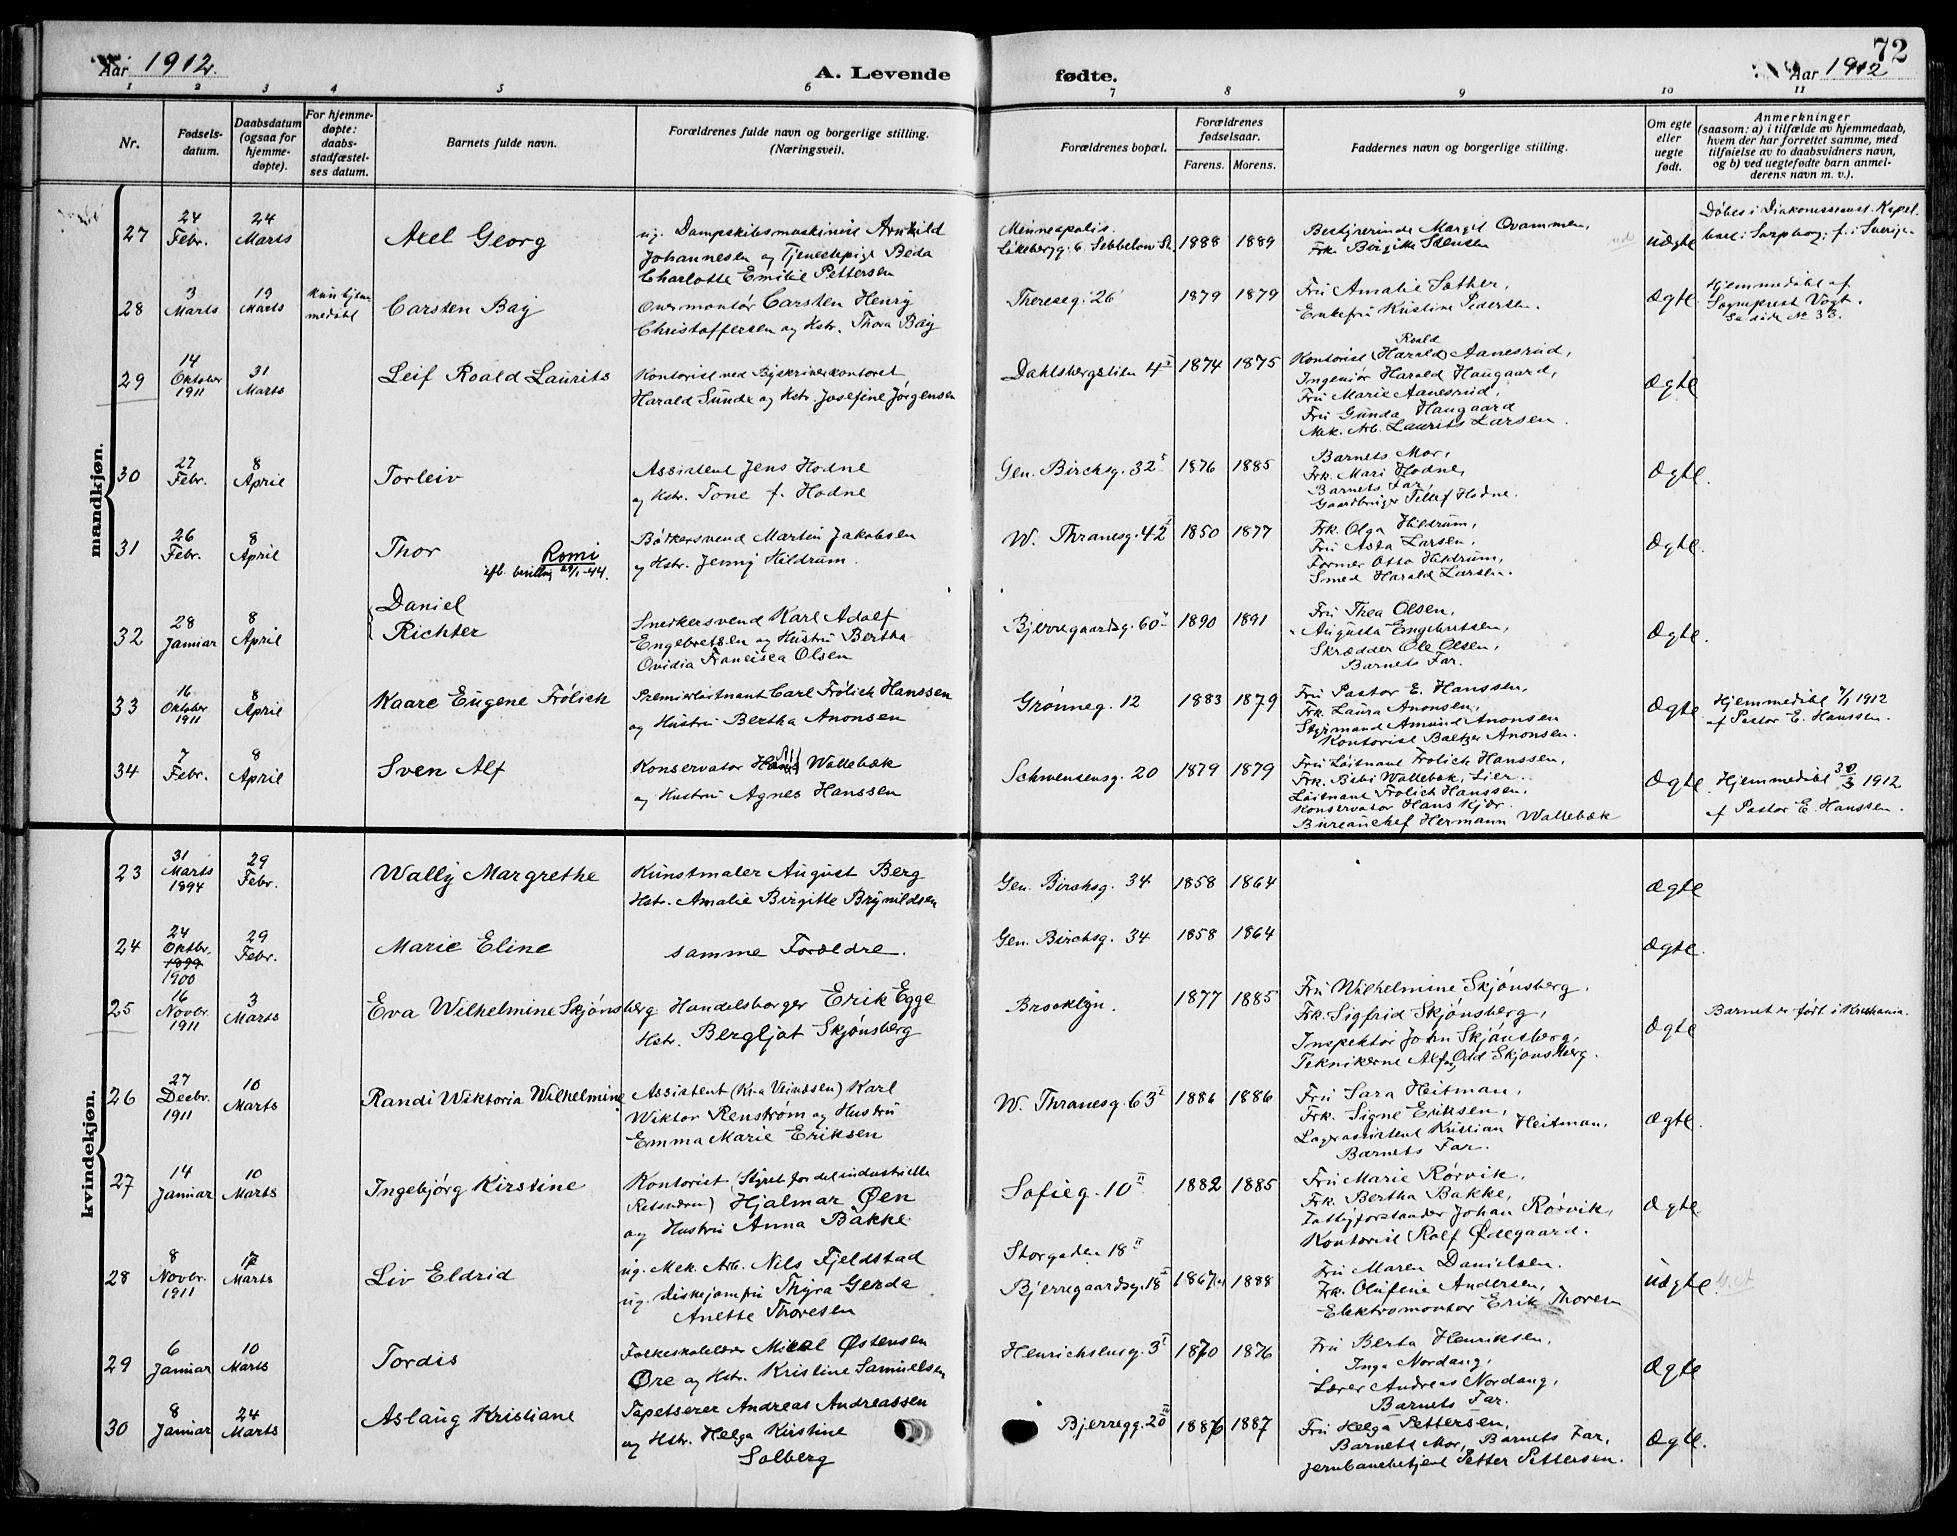 Aar 1912.
A. Levende fødte.
Aar 1912
72
1 2 3 4 5 6 7 8 9 10 11
Nr.
Fødsels-
datum.
Daabsdatum
(ogsaa for
hjemme-
døpte).
For hjemme-
døpte:
daabs-
stadfæstel-
ses datum.
Barnets fulde navn.
Forældrenes fulde navn og borgerlige stilling.
(Næringsvei).
Forældrenes bopæl.
Forældrenes
fødselsaar.
Farens. Morens.
Faddernes navn og borgerlige stilling.
Om egte
eller
uegte
født.
Anmerkninger
(saasom: a) i tilfælde av hjemmedaab,
hvem der har forrettet samme, med
tilføielse av to daabsvidners navn,
og b) ved uegtefødte barn anmel-
derens navn m. v.).
mandkjøn.
27
24
Febr.
24
Marts
Axel Georg
ug. Dampskibsmaskinist Arnhild
Johannesen og Tjenestepige Beda
Charlotte Emilie Pettersen
Minneapolis.
Løkebergg. 6 Sebbelow St.
1888 1889
Bestyrerinde Margit Ovammen,
Frk. Birgitte Stensen
uægte
28
3
Marts
19
Marts
Kun hjem-
medøbt
Carsten Bay
Overmontør Carsten Henry
Christoffersen og Hstr. Thora Bay
Thereseg. 26
1879 1879
Fru Amalie Sæther,
Enkefru Kristine Pedersen.
ægte
Hjemmedøbt af
Sogneprest Vogt.
Se dåb No 33.
29
14
Oktober
1911
31
Marts
Leif Roald Laurits
Kontorist ved Byskriverkontoret
Harald Sunde og Hstr. Josefine Jørgensen
Dahlsbergstien 4 I
1874 1875
Roald
Kontorist (Harald) Aanesrud,
Ingeniør Harald Haugaard,
Fru Marie Aanesrud,
Fru Gunda Haugaard
Mek. Arb. Laurits Larsen.
ægte
30
27
Febr.
8
April
Torleiv
Assistent Jens Hodne
og Hstr. Tone f. Hodne
Gen. Birchsg. 32 I
1876 1885
Barnets Mor,
Frk. Mari Hodne,
Barnets Far,
Gaardbruger Tellef Hodne.
ægte.
31
26
Febr.
8
April
Thor
Romi
efb. bevilling 29/1-44.
Bøtkersvend Martin Jakobsen
og Hstr. Jenny Hildrum.
W. Thranesg. 42 I
1850 1877
Frk. Olga Hildrum,
Fru Asta Larsen,
Former Otto Hildrum,
Smed Harald Larsen.
ægte.
32
28
Januar
8
April
Daniel
Richter
Snedkersvend Karl Adolf
Engebretsen og Hustru Bertha
Ovidia Francisca Olsen
Bjerregaardsg. 60 II
1890 1891
Fru Thea Olsen,
" Augusta Engebretsen,
Skrædder Ole Olsen,
Barnets Far.
ægte.
33
16
Oktober
1911
8
April
Kaare Eugene Frølich
Premierløitnant Carl Frølich Hanssen
og Hustru Bertha Anonsen
Grønneg. 12
1883 1879
Fru Pastor E. Hanssen,
Frk. Laura Anonsen,
Styrmand Amund Anonsen
Kontorist Baltzer Anonsen.
ægte
Hjemmedøbt 7/1 1912
af Pastor E. Hanssen.
34
7
Febr.
8
April
Sven Alf
Konservator Alf Wallebæk
og Hustru Agnes Hanssen
Schwensensg. 20
1879 1879
Fru Løitnant Frølich Hanssen,
Frk. Bibi Wallebæk, Lier.
Løitnant Frølich Hanssen,
Konservator Hans Kjær.
Bureauchef Hermann Wallebæk
ægte.
Hjemmedøbt 30/3 1912
af Pastor E. Hanssen.
kvindekjøn.
23
31
Marts
1894
29
Febr.
Wally Margrethe
Kunstmaler August Berg
Hstr. Amalie Birgitte Brynildsen
Gen. Birchsg. 34
1858 1864
ægte
24
24
Oktbr.
1899
1900
29
Febr.
Marie Eline
samme Forældre.
Gen. Birchsg. 34
1858 1864
ægte.
25
16
Novbr.
1911
3
Marts
Eva Wilhelmine Skjønsberg
Handelsborger Erik Egge
Hstr. Bergljot Skjønsberg
Brooklyn.
1877 1885
Fru Wilhelmine Skjønsberg,
Frk. Sigfrid Skjønsberg,
Inspektør John Skjønsberg,
Teknikerne Alf og Odd Skjønsberg.
ægte
Barnet er født i Kristiania.
26
27
Decbr.
1911
10
Marts
Randi Wiktoria Wilhelmine
Assistent (Kr.a Veivæsen) Karl
Wiktor Renstrøm og Hustru
Emma Marie Eriksen
W. Thranesg. 63 I
1886 1886
Fru Sara Heitman,
Frk. Signe Eriksen,
Lagerassistent Kristian Heitman,
Barnets Far.
ægte.
27
14
Januar
10
Marts
Ingebjørg Kirstine
Kontorist (Styret for det industrielle
Retsværn) Hjalmar Øen
og Hustru Anna Bakke.
Sofieg. 10 II
1882 1885
Fru Marie Rørvik,
Frk. Bertha Bakke,
Fattigforstander Johan Rørvik,
Kontorist Rolf Ødegaard.
ægte
28
8
Novbr.
1911
17
Marts
Liv Eldrid
ug. Mek. Arb. Nils Fjeldstad
ug. Diskejomfru Thyra Gerda
Anette Thoresen
Storgaden 18 II
Bjerregaardsg. 18 I
1867 1888
Fru Maren Danielsen.
Frk. Olufine Andersen,
Elektromontør Erik Thoresen
uægte
29
6
Januar
10
Marts
Tordis
Folkeskolelærer Mikal Østensen
Øre og Hstr. Kristine Samuelsen
Henrichsensg. 3 I
1870 1876
Fru Berta Henriksen,
Inga Nordang,
Lærer Andreas Nordang,
Barnets Far.
ægte
30
8
Januar
24
Marts
Aslaug Kristiane
Tapetserer Andreas Andreassen
og Hstr. Helga Kirstine
Solberg
Bjerregg. 20 IV
1886 1887
Fru Helga Pettersen,
Barnets Mor, Barnets Far,
Jernbanebetjent Petter Pettersen.
ægte.